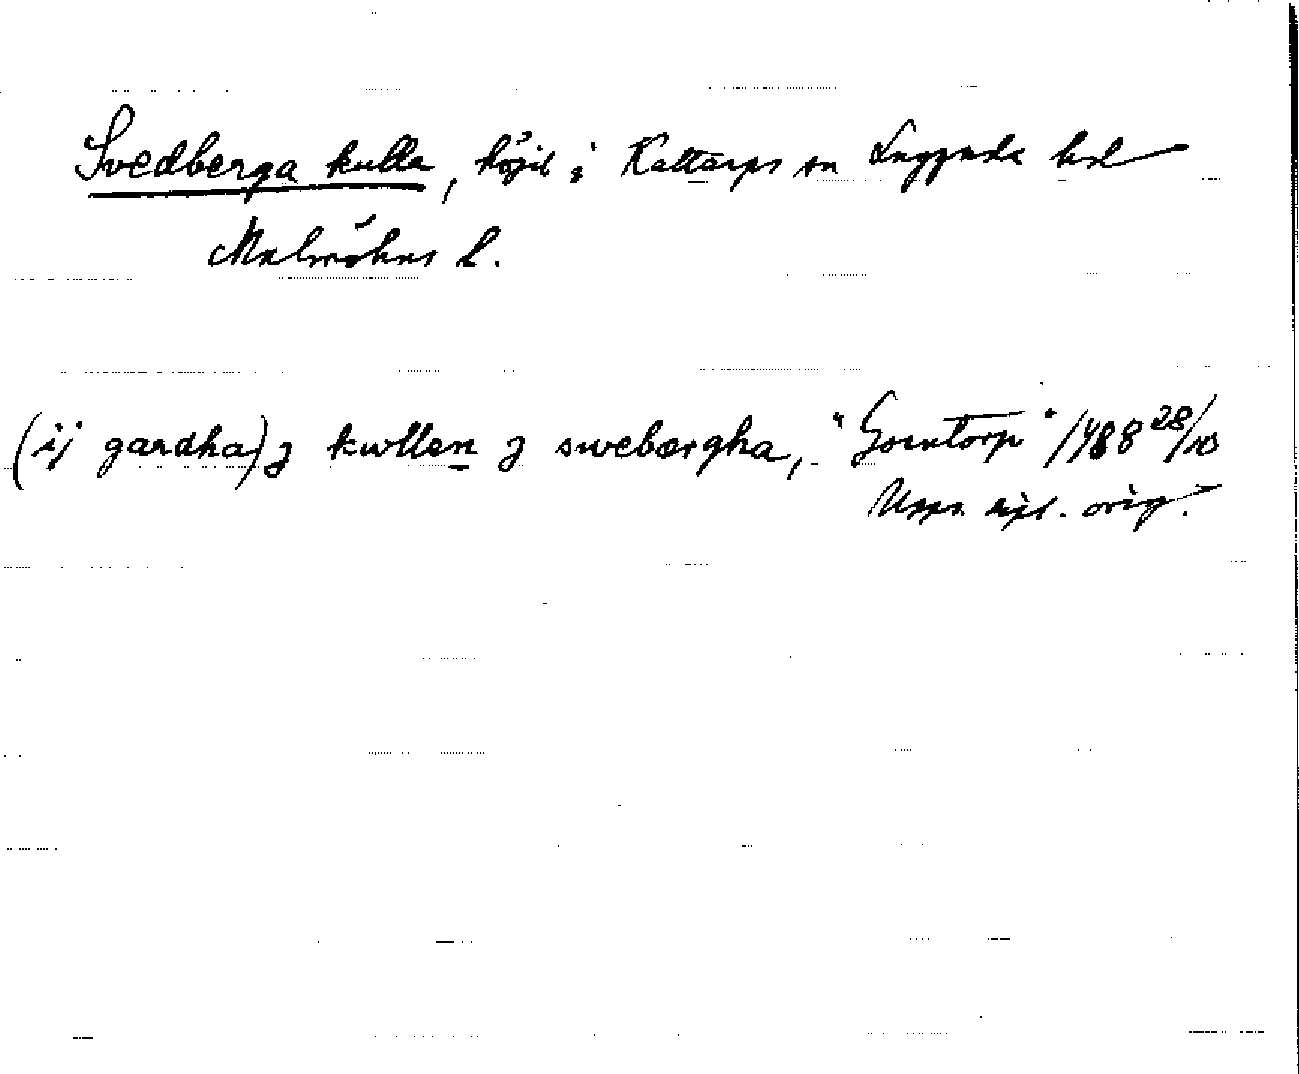 Svedberga kulle, höjd i Kattarps sn Luggude hd
Malmöhus l.
(ij gardha) j kwllen j swebærgha, "Gorntorp" 1488 28/10
Upps. dipl. orig.